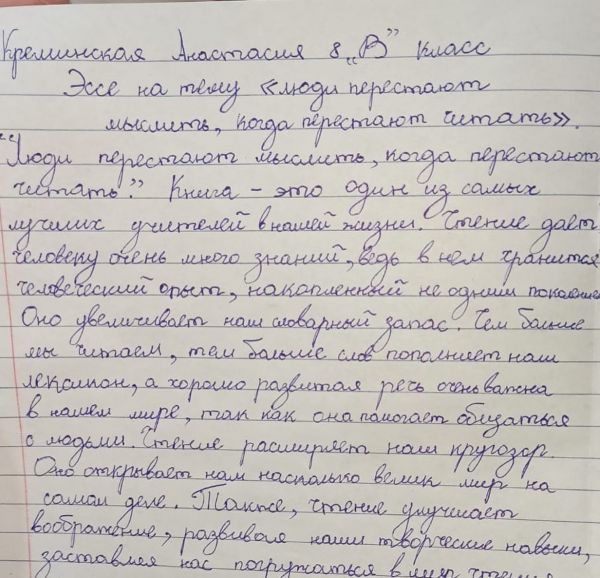 Креминская Анастасия 8 „В” класс
Эссе на тему «люди перестают
мыслить, когда перестают читать».
"Люди перестают мыслить, когда перестают
читать." Книга – это один из самых
лучших учителей в нашей жизни. Чтение даёт
человеку очень много знаний, ведь в нём хранится
человеческий опыт, накопленный не одним
Оно увеличивает наш словарный запас. Чем больше
мы читаем, тем больше слов пополняет наш
лексикон, а хорошо развитая речь очень важна
в нашем мире, так как она помогает общаться
с людьми. Чтение расширяет наш кругозор.
Оно открывает нам насколько велик мир на
самом деле. Также, чтение улучшает
воображение, развивая наши творческие навыки,
заставляя нас погружаться в мир чтения